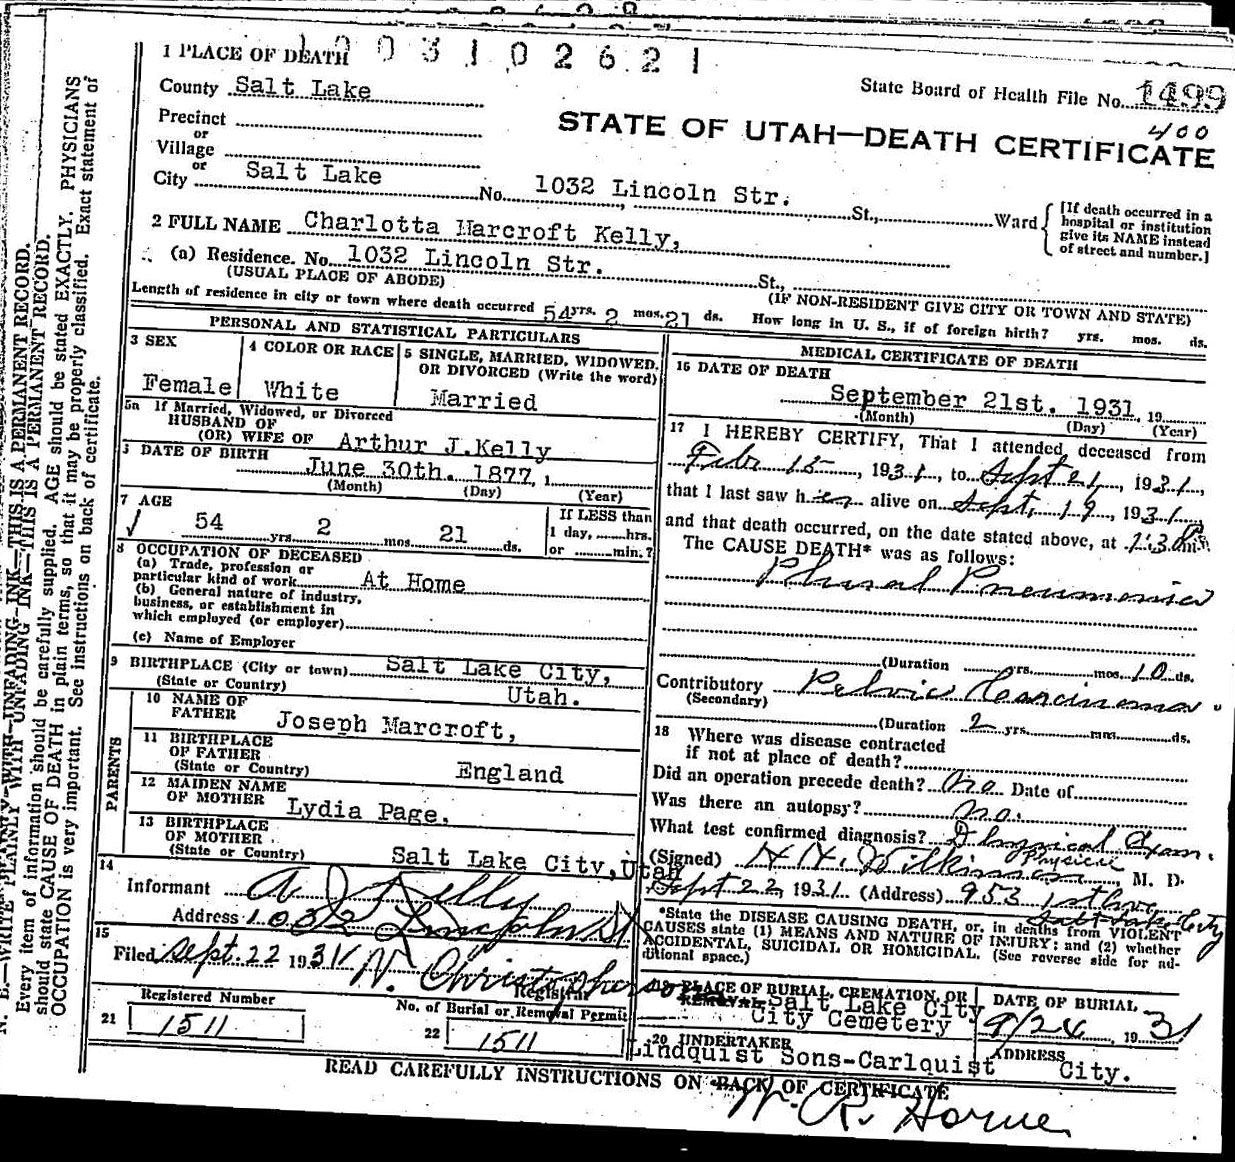 1 PLACE OF DEATH
1003102621
County Salt Lake
State Board of Health File No. 1499
400
Precinct
or
Village
or
City Salt Lake No. 1032 Lincoln Str. St., Ward
STATE OF UTAH—DEATH CERTIFICATE
[If death occurred in a
hospital or institution
give its NAME instead
of street and number.]
2 FULL NAME Charlotta Marcroft Kelly,
(a) Residence. No. 1032 Lincoln Str. St.,
(USUAL PLACE OF ABODE) (IF NON-RESIDENT GIVE CITY OR TOWN AND STATE)
Length of residence in city or town where death occurred 54 yrs. 2 mos. 21 ds. How long in U. S., if of foreign birth? yrs. mos. ds.
PERSONAL AND STATISTICAL PARTICULARS
3 SEX
Female
4 COLOR OR RACE
White
5 SINGLE, MARRIED, WIDOWED,
OR DIVORCED (Write the word)
Married
5a If Married, Widowed, or Divorced
HUSBAND OF
(OR) WIFE OF Arthur J.Kelly
DATE OF BIRTH
June 30th. 1877, 1
(Month) (Day) (Year)
7 AGE
54 yrs. 2 mos. 21 ds.
If LESS than
1 day, hrs.
or min.?
8 OCCUPATION OF DECEASED
(a) Trade, profession or
particular kind of work At Home
(b) General nature of industry,
business, or establishment in
which employed (or employer)
(c) Name of Employer
9 BIRTHPLACE (City or town) Salt Lake City,
(State or Country) Utah.
PARENTS
10 NAME OF
FATHER Joseph Marcroft,
11 BIRTHPLACE
OF FATHER
(State or Country) England
12 MAIDEN NAME
OF MOTHER Lydia Page,
13 BIRTHPLACE
OF MOTHER
(State or Country) Salt Lake City, Utah
14
Informant A J Kelly
Address 1032 Lincoln St
15
Filed Sept. 22 1931 N. Christopherson
Registrar
Registered Number
21 1511
No. of Burial or Removal Permit
22 1511
MEDICAL CERTIFICATE OF DEATH
16 DATE OF DEATH
September 21st. 1931, 19
(Month) (Day) (Year)
17 I HEREBY CERTIFY, That I attended deceased from
Feb 15, 1931, to Sept 21, 1931,
that I last saw her alive on Sept. 19, 1931
and that death occurred, on the date stated above, at 1:30
The CAUSE DEATH* was as follows:
Plural Pneumonia
(Duration yrs. mos. 10 ds.
Contributory Pelvic Carcinoma.
(Secondary)
(Duration 2 yrs. mos. ds.
18 Where was disease contracted
if not at place of death?
Did an operation precede death? no Date of
Was there an autopsy? no.
What test confirmed diagnosis? Physical Exam.
Physical
(Signed) H. Wilkinson, M. D.
Sept 22, 1931 (Address) 953 1st Ave
Salt Lake City
*State the DISEASE CAUSING DEATH, or, in deaths from VIOLENT
CAUSES state (1) MEANS AND NATURE OF INJURY; and (2) whether
ACCIDENTAL, SUICIDAL OR HOMICIDAL. (See reverse side for ad-
ditional space.)
19 PLACE OF BURIAL, CREMATION, OR
REMOVAL Salt Lake City
City Cemetery
DATE OF BURIAL
9/24, 1931
20 UNDERTAKER
Lindquist Sons-Carlquist
ADDRESS
City.
READ CAREFULLY INSTRUCTIONS ON BACK OF CERTIFICATE
W. R. Horne
N. B.—WRITE PLAINLY WITH UNFADING INK—THIS IS A PERMANENT RECORD.
Every item of information should be carefully supplied. AGE should be stated EXACTLY. PHYSICIANS
should state CAUSE OF DEATH in plain terms, so that it may be properly classified. Exact statement of
OCCUPATION is very important. See instructions on back of certificate.